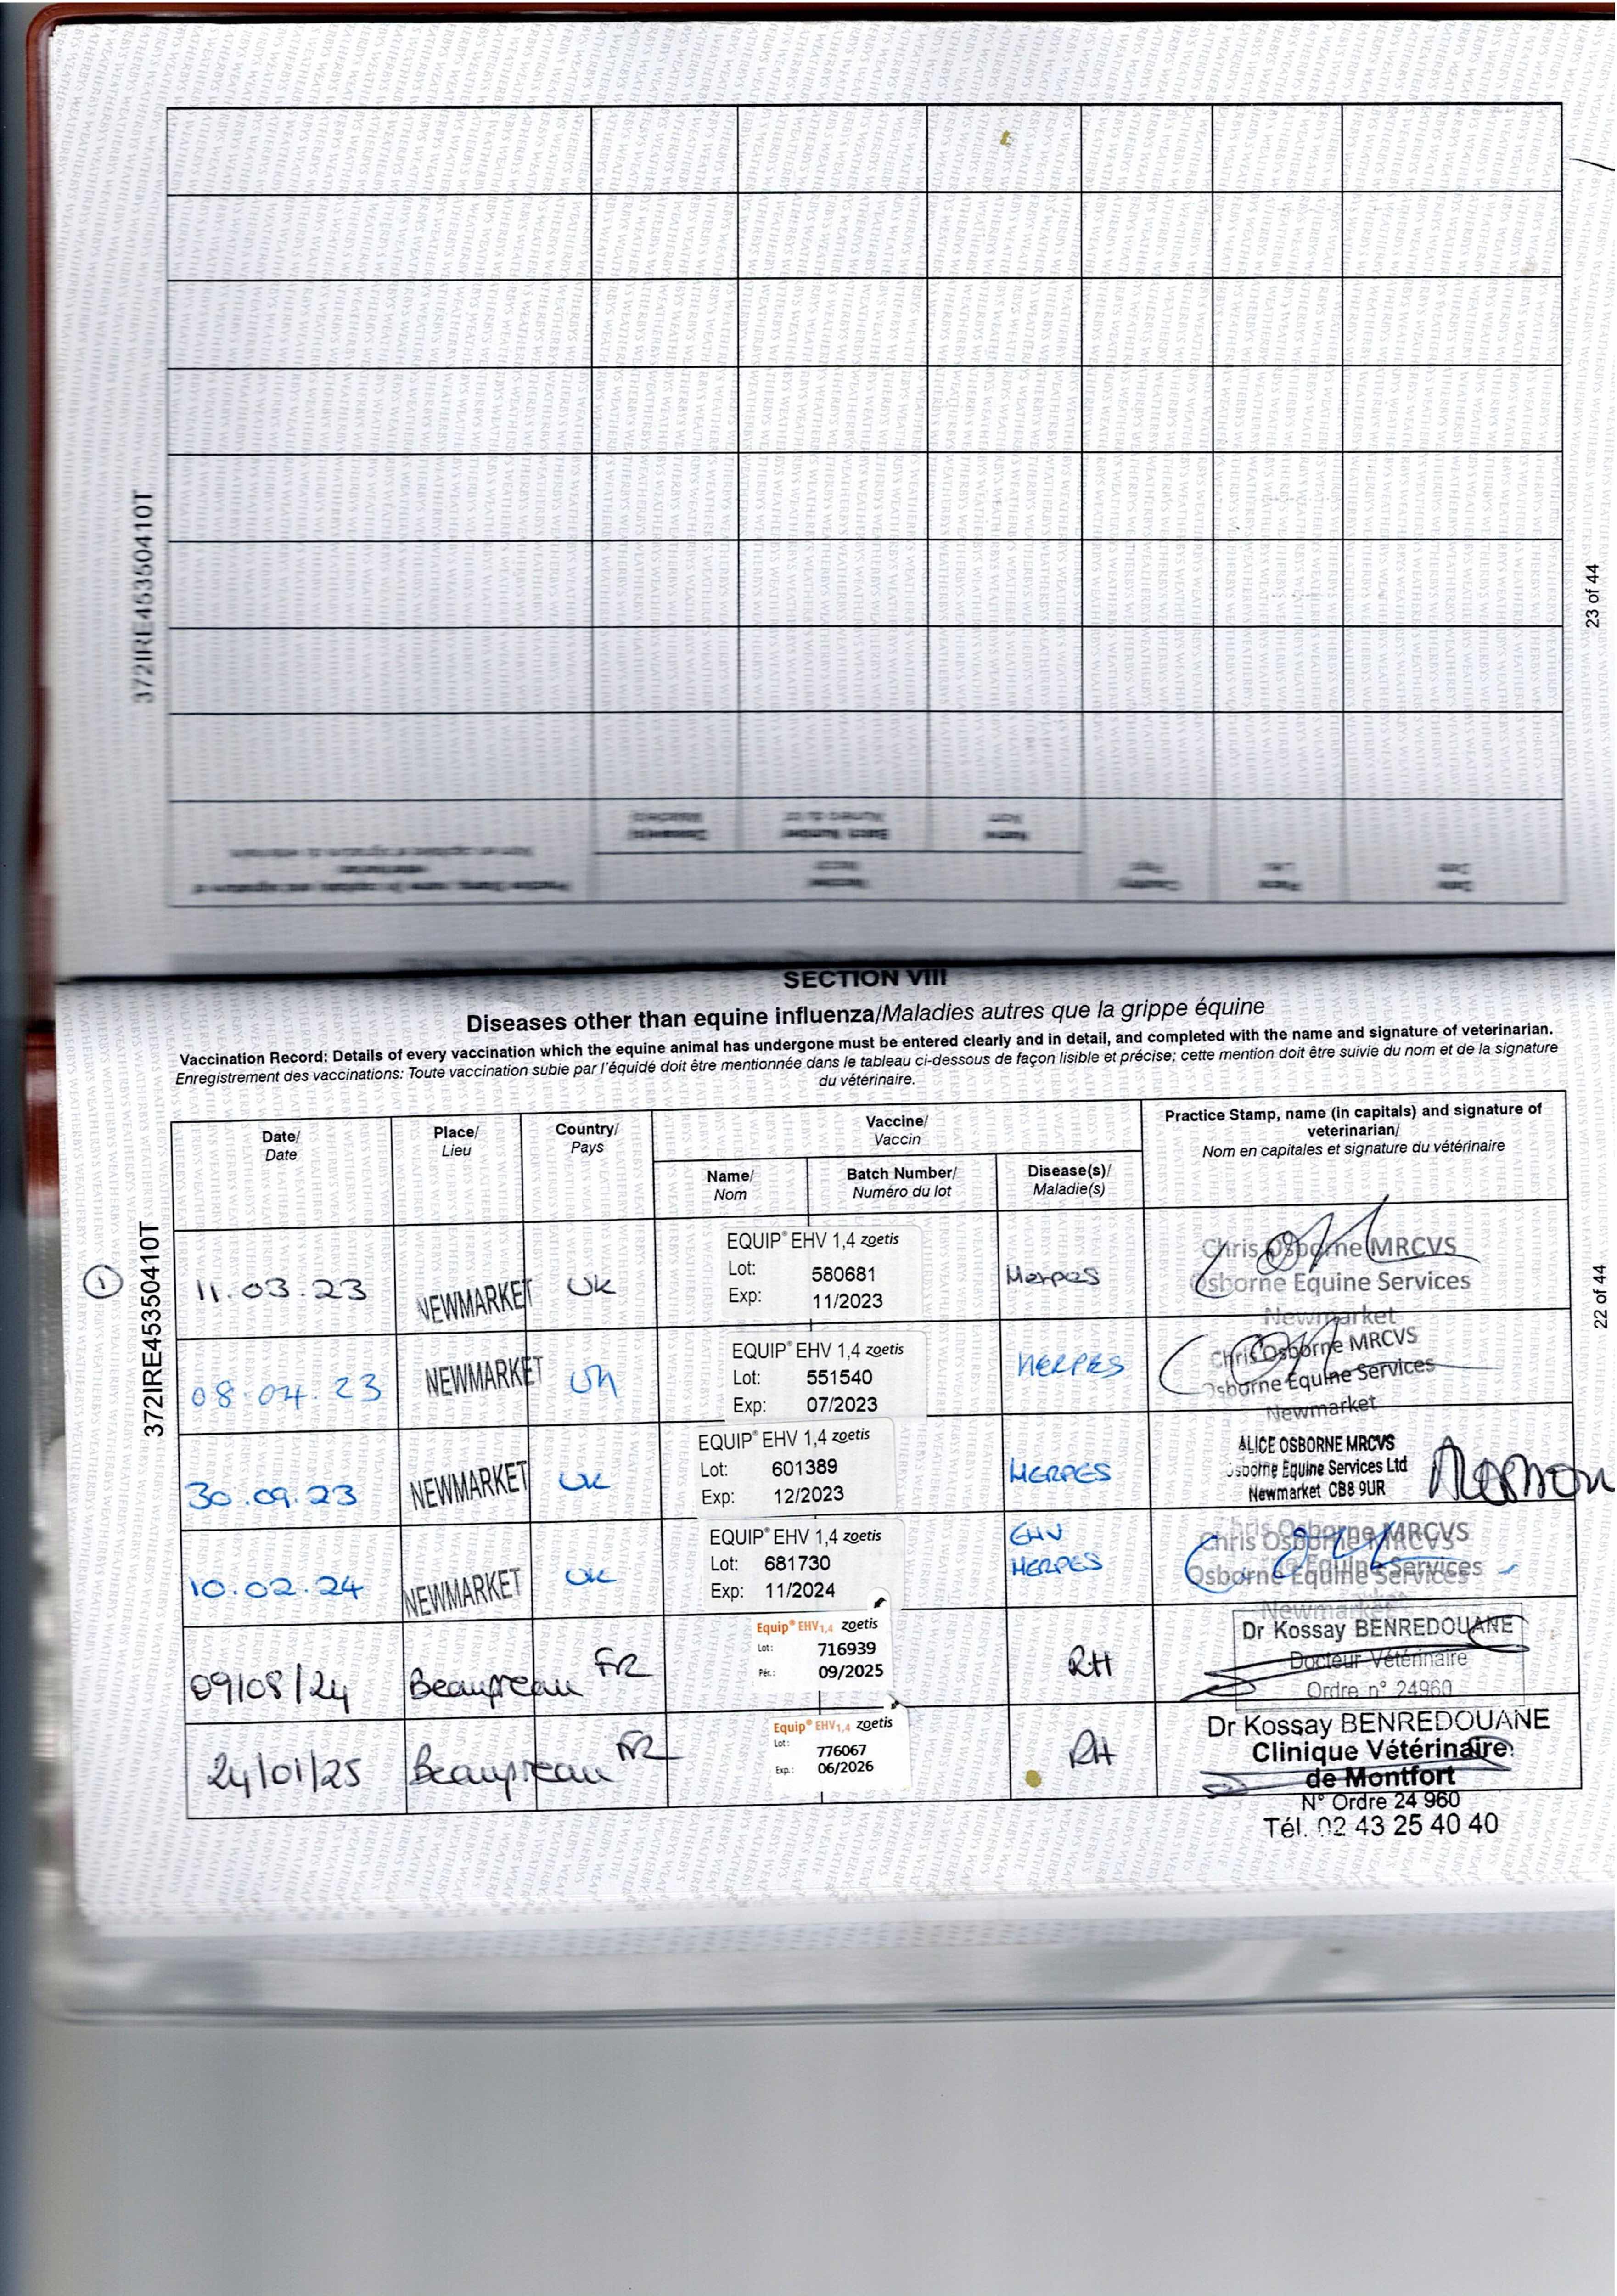 372IRE45350410T
23 of 44
SECTION VIII
Diseases other than equine influenza/Maladies autres que la grippe équine
Vaccination Record: Details of every vaccination which the equine animal has undergone must be entered clearly and in detail, and completed with the name and signature of veterinarian.
Enregistrement des vaccinations: Toute vaccination subie par l'équidé doit être mentionnée dans le tableau ci-dessous de façon lisible et précise; cette mention doit être suivie du nom et de la signature
du vétérinaire.
372IRE45350410T
22 of 44
1
Date/
Date
Place/
Lieu
Country/
Pays
Vaccine/
Vaccin
Name/
Nom
Batch Number/
Numéro du lot
Disease(s)/
Maladie(s)
Practice Stamp, name (in capitals) and signature of
veterinarian/
Nom en capitales et signature du vétérinaire
11.03.23
NEWMARKET
UK
EQUIP® EHV 1,4 zoetis
Lot: 580681
Exp: 11/2023
Herpes
Chris Osborne MRCVS
Osborne Equine Services
Newmarket
08.04.23
NEWMARKET
UK
EQUIP® EHV 1,4 zoetis
Lot: 551540
Exp: 07/2023
HERPES
Chris Osborne MRCVS
Osborne Equine Services
Newmarket
30.09.23
NEWMARKET
UK
EQUIP® EHV 1,4 zoetis
Lot: 601389
Exp: 12/2023
HERPES
ALICE OSBORNE MRCVS
Osborne Equine Services Ltd
Newmarket CB8 9UR
10.02.24
NEWMARKET
UK
EQUIP® EHV 1,4 zoetis
Lot: 681730
Exp: 11/2024
EHV
HERPES
Chris Osborne MRCVS
Osborne Equine Services
Newmarket
09/08/24
Beaupreau
FR
Equip® EHV1,4 zoetis
Lot: 716939
Pér.: 09/2025
RH
Dr Kossay BENREDOUANE
Docteur Vétérinaire
Ordre n° 24960
24/01/25
Beaupreau
FR
Equip® EHV1,4 zoetis
Lot: 776067
Exp.: 06/2026
RH
Dr Kossay BENREDOUANE
Clinique Vétérinaire
de Montfort
N° Ordre 24 960
Tél. 02 43 25 40 40